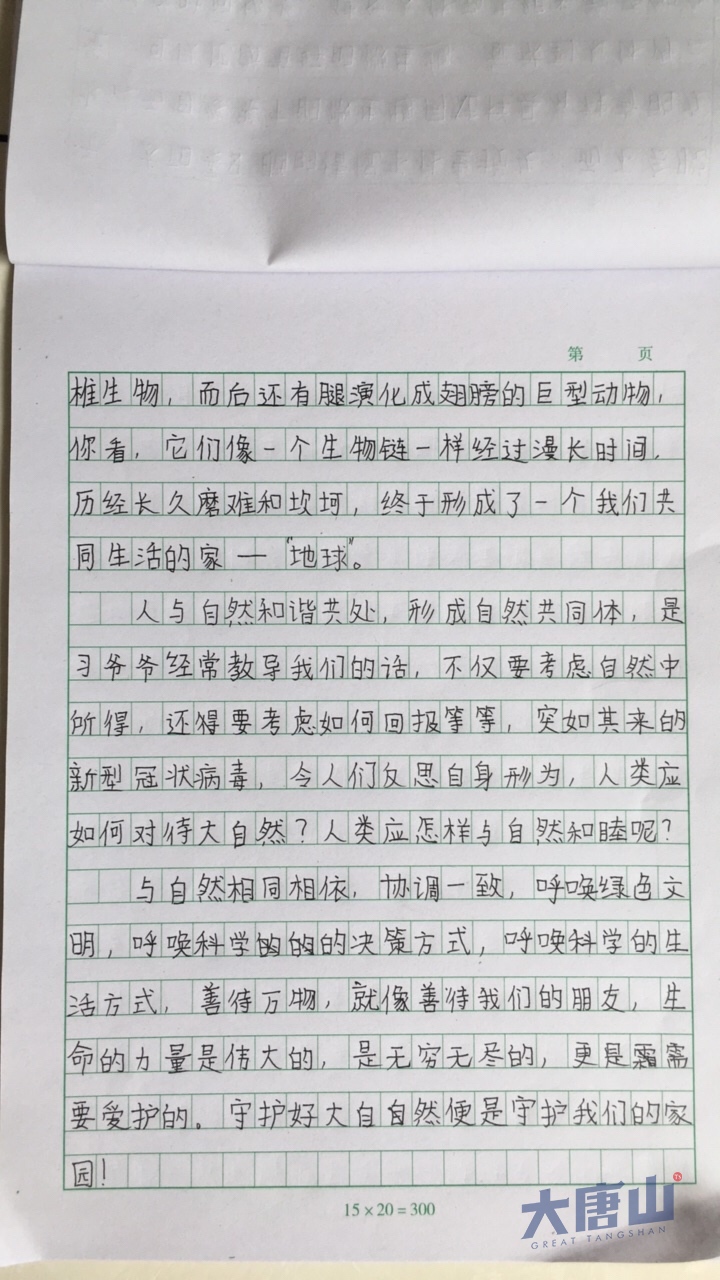 第 页
椎生物，而后还有腿演化成翅膀的巨型动物，
你看，它们像一个生物链一样经过漫长时间，
历经长久磨难和坎坷，终于形成了一个我们共
同生活的家—“地球”。
人与自然和谐共处，形成自然共同体，是
习爷爷经常教导我们的话，不仅要考虑自然中
所得，还得要考虑如何回报等等，突如其来的
新型冠状病毒，令人们反思自身形为，人类应
如何对待大自然？人类应怎样与自然和睦呢？
与自然相同相依，协调一致，呼唤绿色文
明，呼唤科学的的的决策方式，呼唤科学的生
活方式，善待万物，就像善待我们的朋友，生
命的力量是伟大的，是无穷无尽的，更是霜需
要爱护的。守护好大自自然便是守护我们的家
园！
15×20=300
大唐山
GREAT TANGSHAN